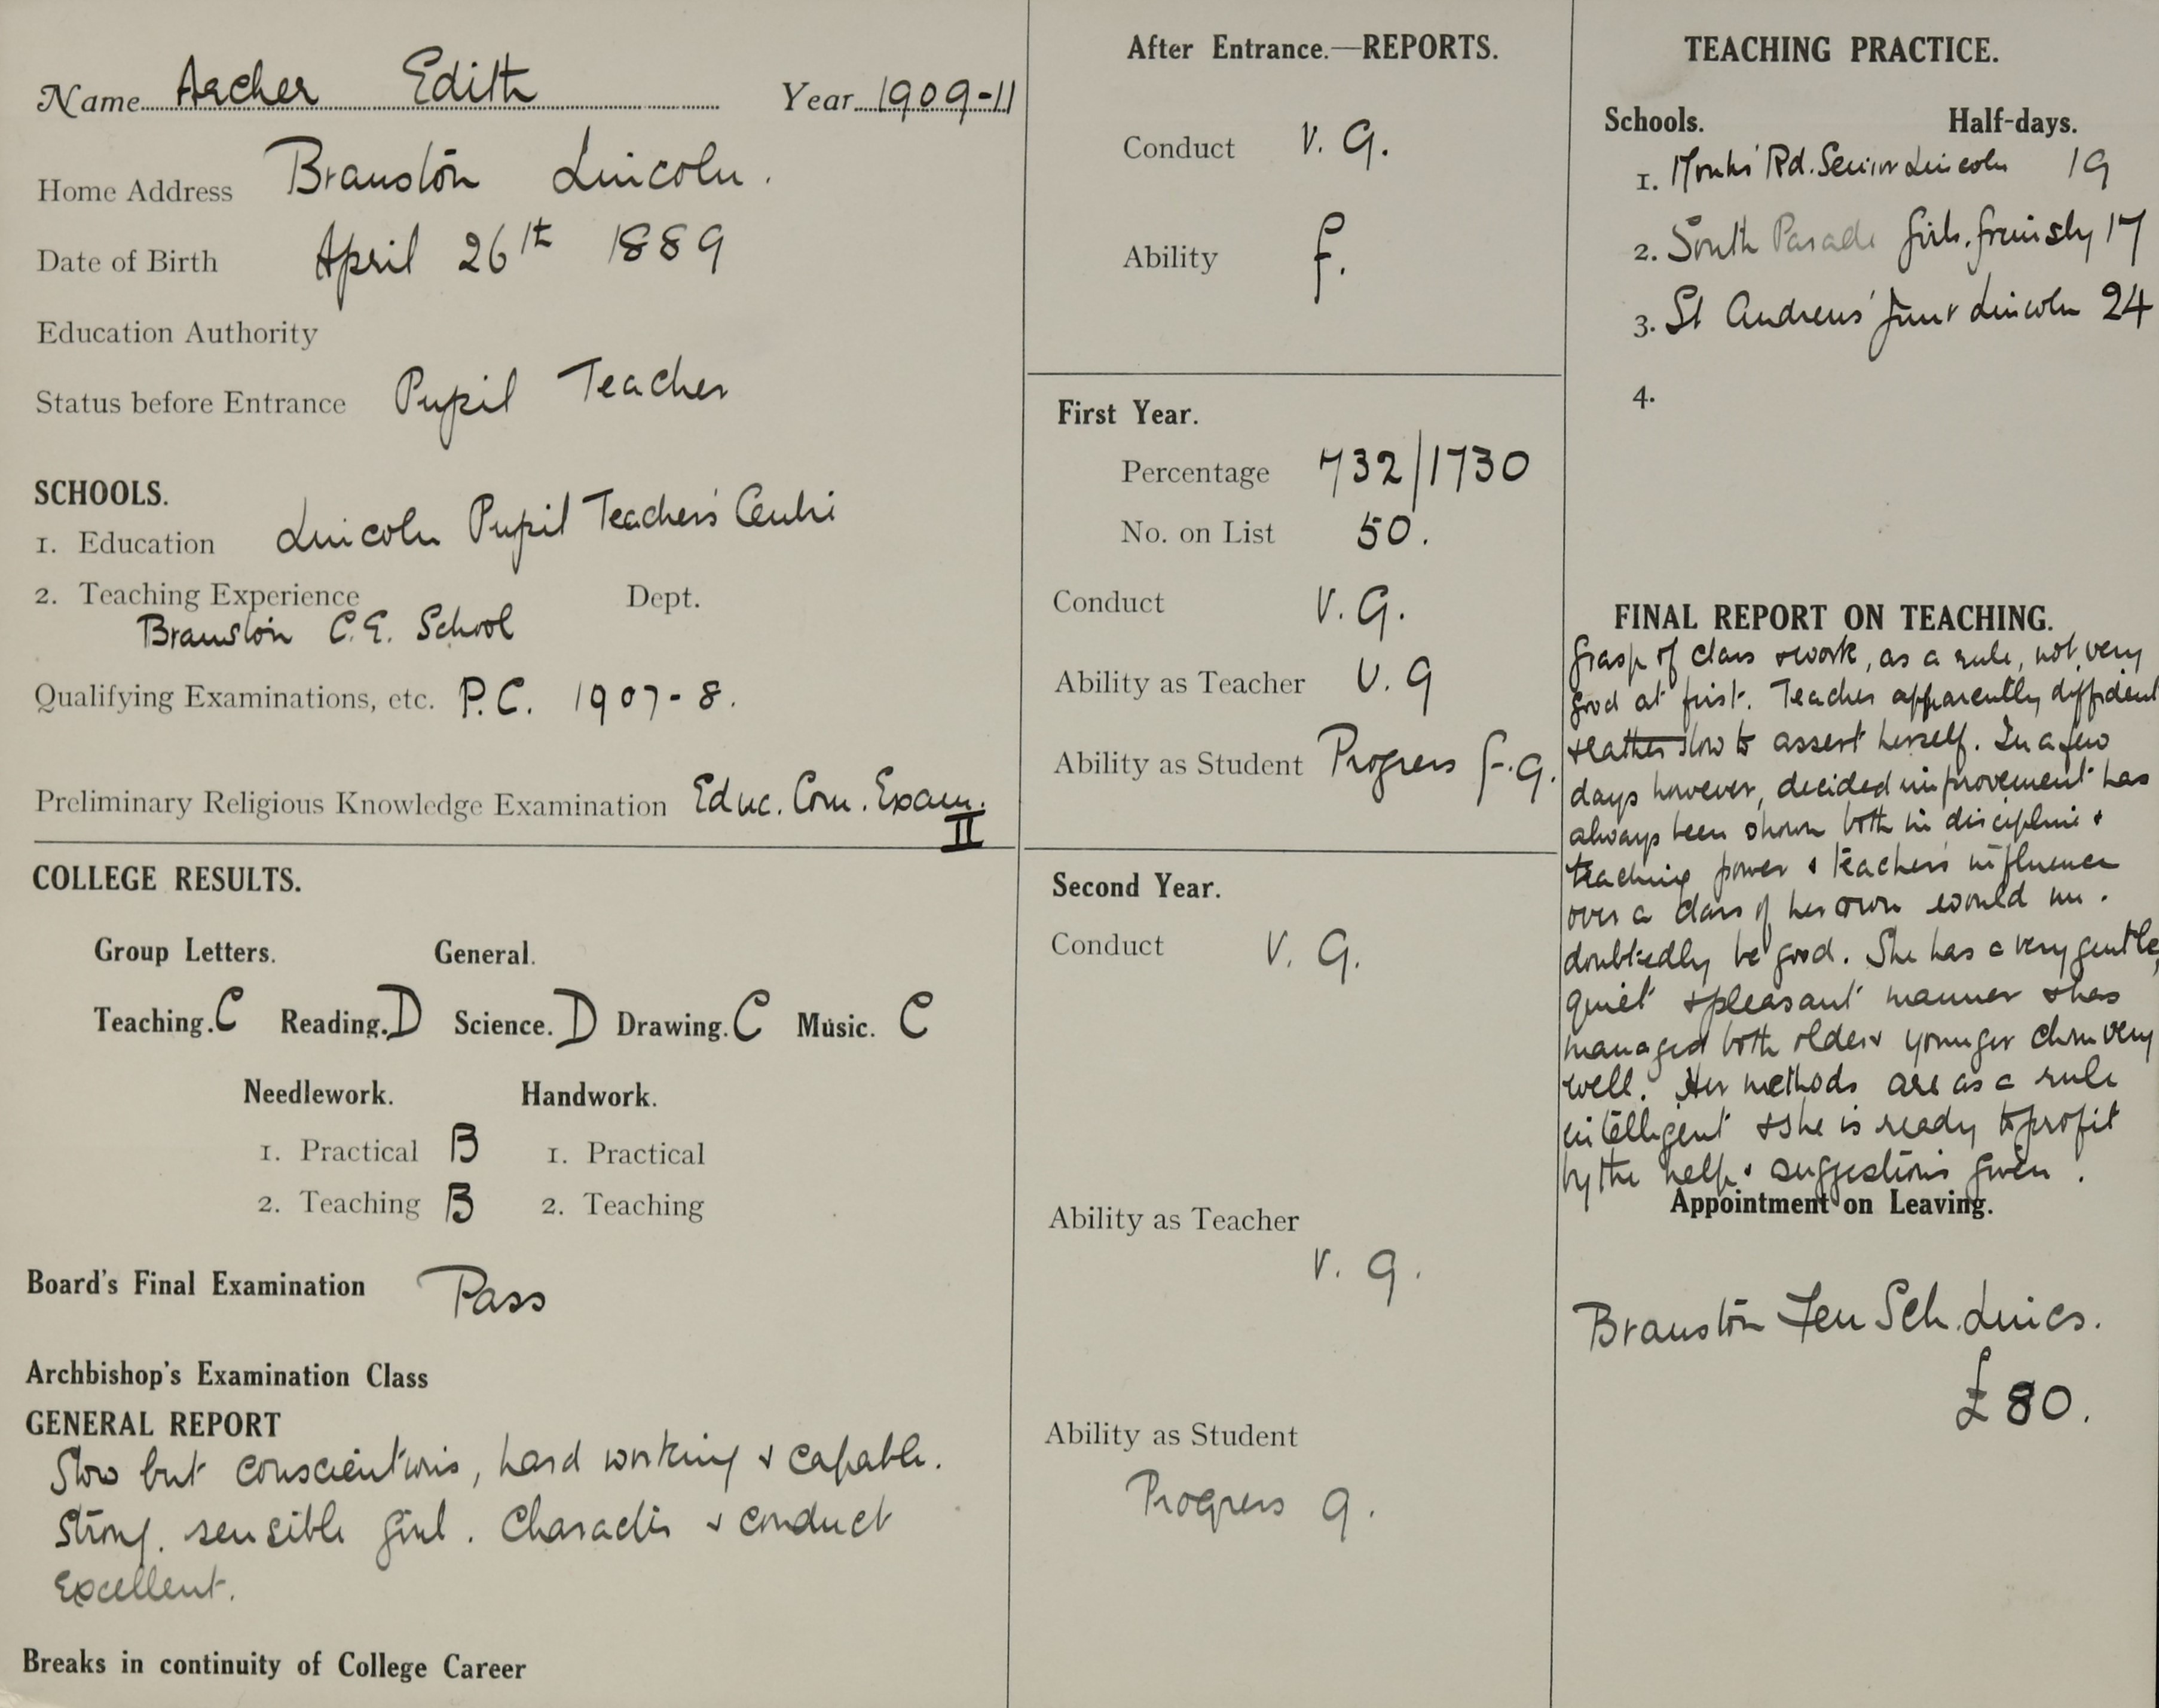 Name Archer Edith Year 1909-11
Home Address Branston Lincoln.
Date of Birth April 26th 1889
Education Authority
Status before Entrance Pupil Teacher
SCHOOLS.
1. Education Lincoln Pupil Teachers' Centre
2. Teaching Experience Dept.
Branston C.E. School
Qualifying Examinations, etc. P.C. 1907-8.
Preliminary Religious Knowledge Examination Educ. Com. Exam.
II
COLLEGE RESULTS.
Group Letters. General.
Teaching. C Reading. D Science. D Drawing. C Music. C
Needlework. Handwork.
1. Practical B 1. Practical
2. Teaching B 2. Teaching
Board's Final Examination Pass
Archbishop's Examination Class
GENERAL REPORT
Slow but conscientious, hard working & capable.
Strong, sensible girl. Character & conduct
Excellent.
Breaks in continuity of College Career
After Entrance.—REPORTS.
Conduct V. G.
Ability f.
First Year.
Percentage 732/1730
No. on List 50.
Conduct V. G.
Ability as Teacher V. G
Ability as Student Progress f.g.
Second Year.
Conduct V. G.
Ability as Teacher
V. G.
Ability as Student
Progress g.
TEACHING PRACTICE.
Schools. Half-days.
1. Monks' Rd. Senior Lincoln 19
2. South Parade Girls. Grimsby 17
3. St Andrews' Junr Lincoln 24
4.
FINAL REPORT ON TEACHING.
Grasp of class & work, as a rule, not very
good at first. Teacher apparently diffident
& rather slow to assert herself. In a few
days however, decided improvement has
always been shown both in discipline &
teaching power & teacher's influence
over a class of her own would un-
doubtedly be good. She has a very gentle,
quiet & pleasant manner & has
managed both older & younger chn very
well. Her methods are as a rule
intelligent & she is ready to profit
by the help & suggestions given.
Appointment on Leaving.
Branston Fen Sch. Lincs.
£80.